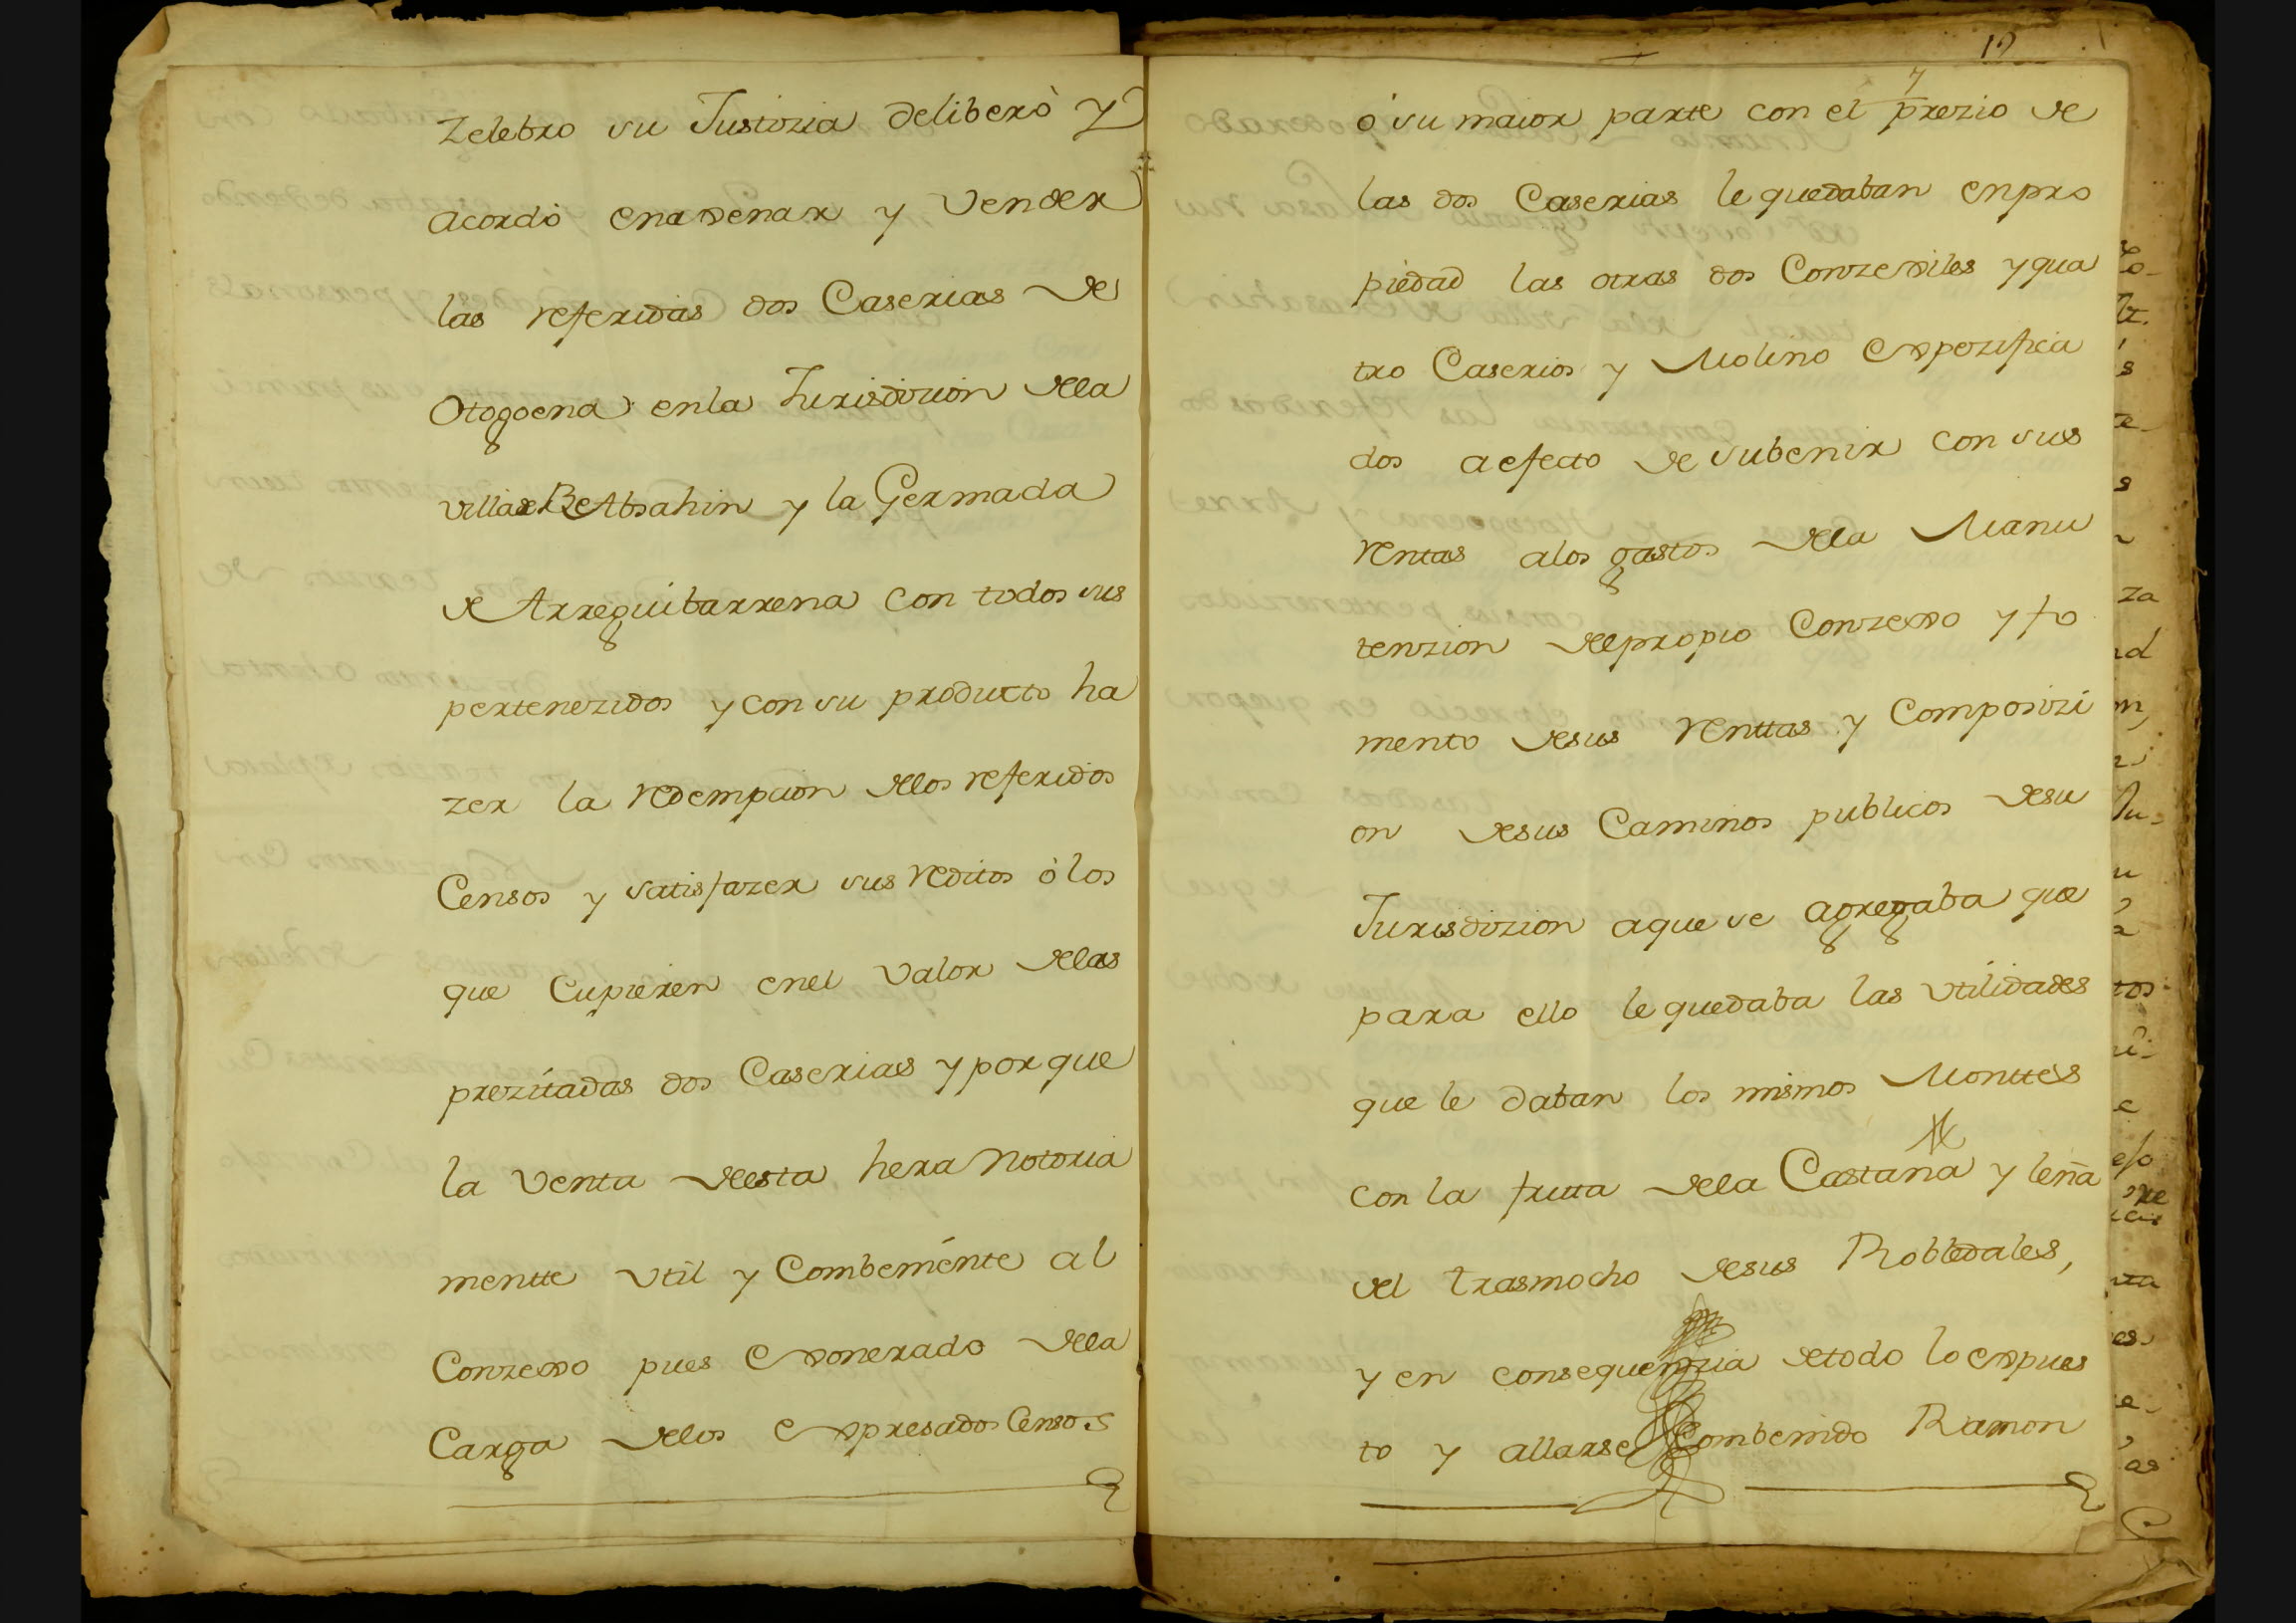 Zelebro su Justizia deliberò y
acordò enaxenar y vender
las referidas dos Caserias de
Otogoena enla Jurisdizion della
villa de BeAbsahin y la Germada
de Arreguibarrena con todos sus
pertenezidos y con su producto ha
zer la redempcion dellos referidos
Censos y satisfazer sus reditos ò los
que Cupieren enel valor dellas
prezitadas dos Caserias y por que
la venta desta hera notoria
mentte vtil y Combeniente al
Conzexo pues exonerado della
Carga delos expresados Censos
19
7
ò su maior parte con el prezio de
las dos Caserias le quedaban enpro
piedad las otras dos Conzexiles y qua
tro Caserios y Molino expezifica
dos aefecto de subenir con sus
rentas alos gastos della Manu
tenzion delpropio Conzexo y fo
mento desus renttas y Composizi
on desus Caminos publicos desu
Jurisdizion aque se agregaba que
para ello le quedaba las vtilidades
que le daban los mismos Monttes
con la frutta dela Castana y leña
del trasmocho desus Robledales,
y en consequenzia detodo lo expues
to y allarse Combenido Ramon